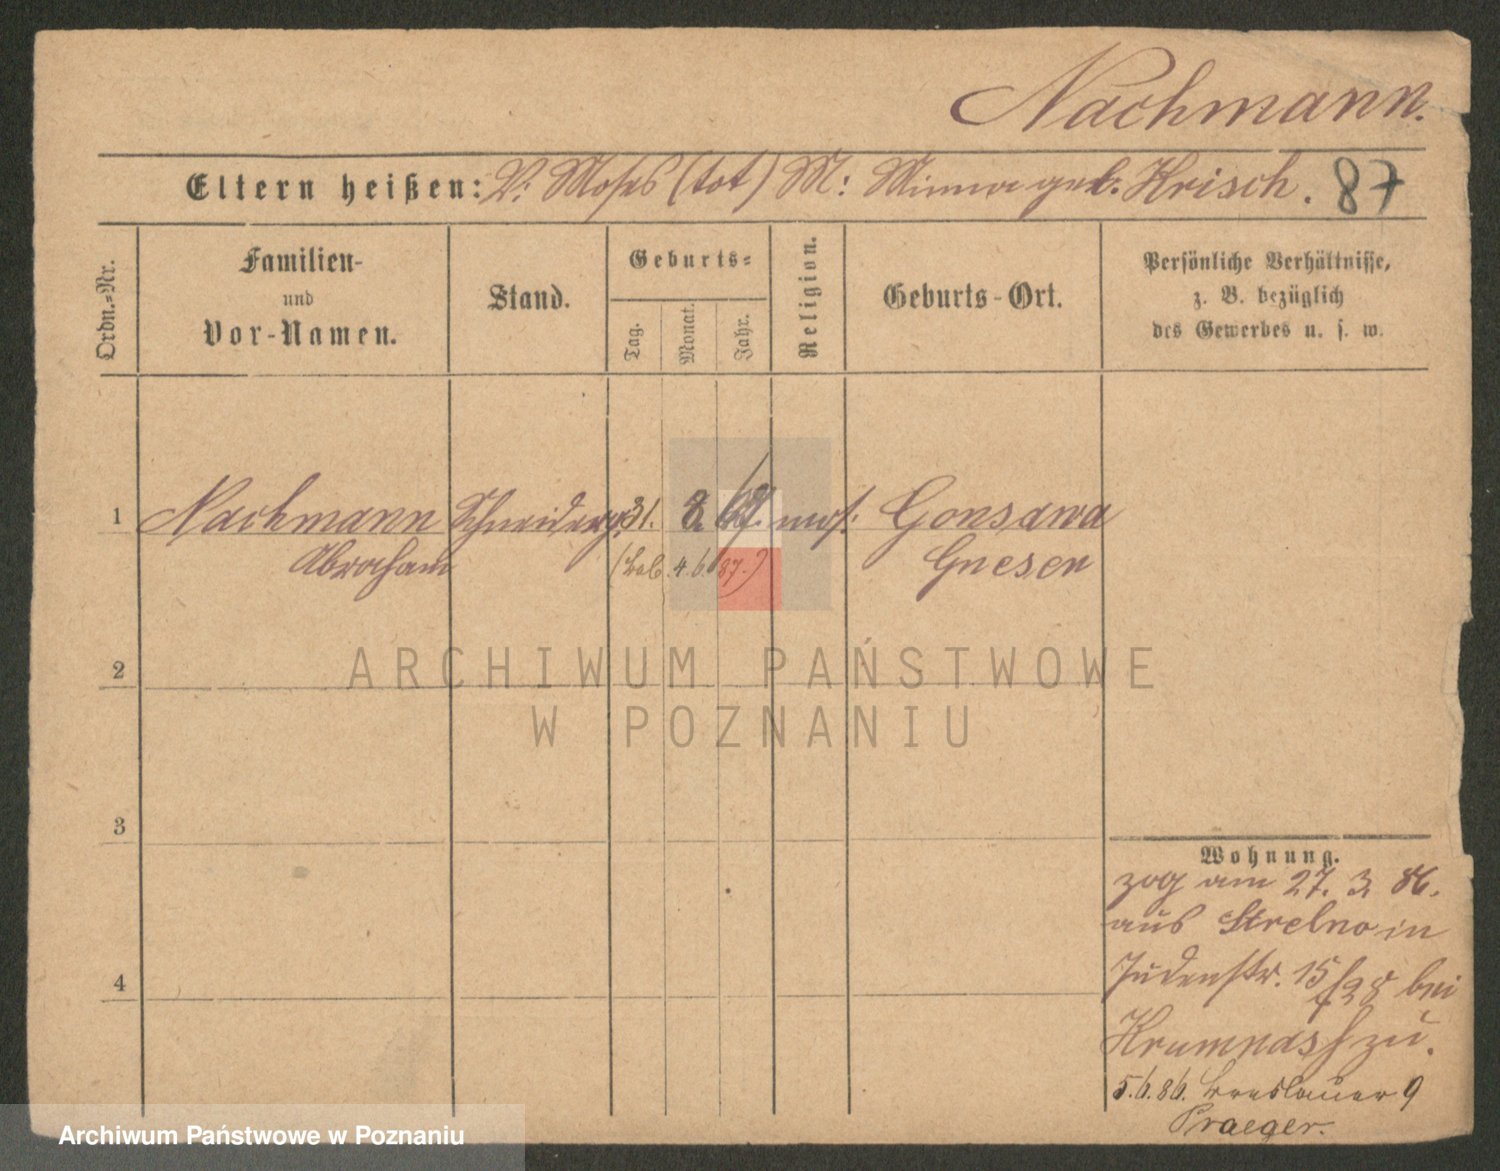 Nachmann.
Eltern heißen: V: Moses (tot) M: Minna geb. Hrisch. 87
Ordn.=Nr.
Familien-
und
Vor-Namen.
Stand.
Geburts=
Tag.
Monat.
Jahr.
Religion.
Geburts-Ort.
Persönliche Verhältnisse,
z. B. bezüglich
des Gewerbes u. s. w.
1 Nachmann Schneiderg. 31. 8. mos. Gonsawa
Abraham 4. 6. 87.) Gnesen
2
3
4
ARCHIWUM PAŃSTWOWE
W POZNANIU
Wohnung.
zog am 27. 3. 86.
aus Strelno in
Judenstr. 15/28 bei
zu.
5.6.86. Breslauer 9
Praeger.
Archiwum Państwowe w Poznaniu